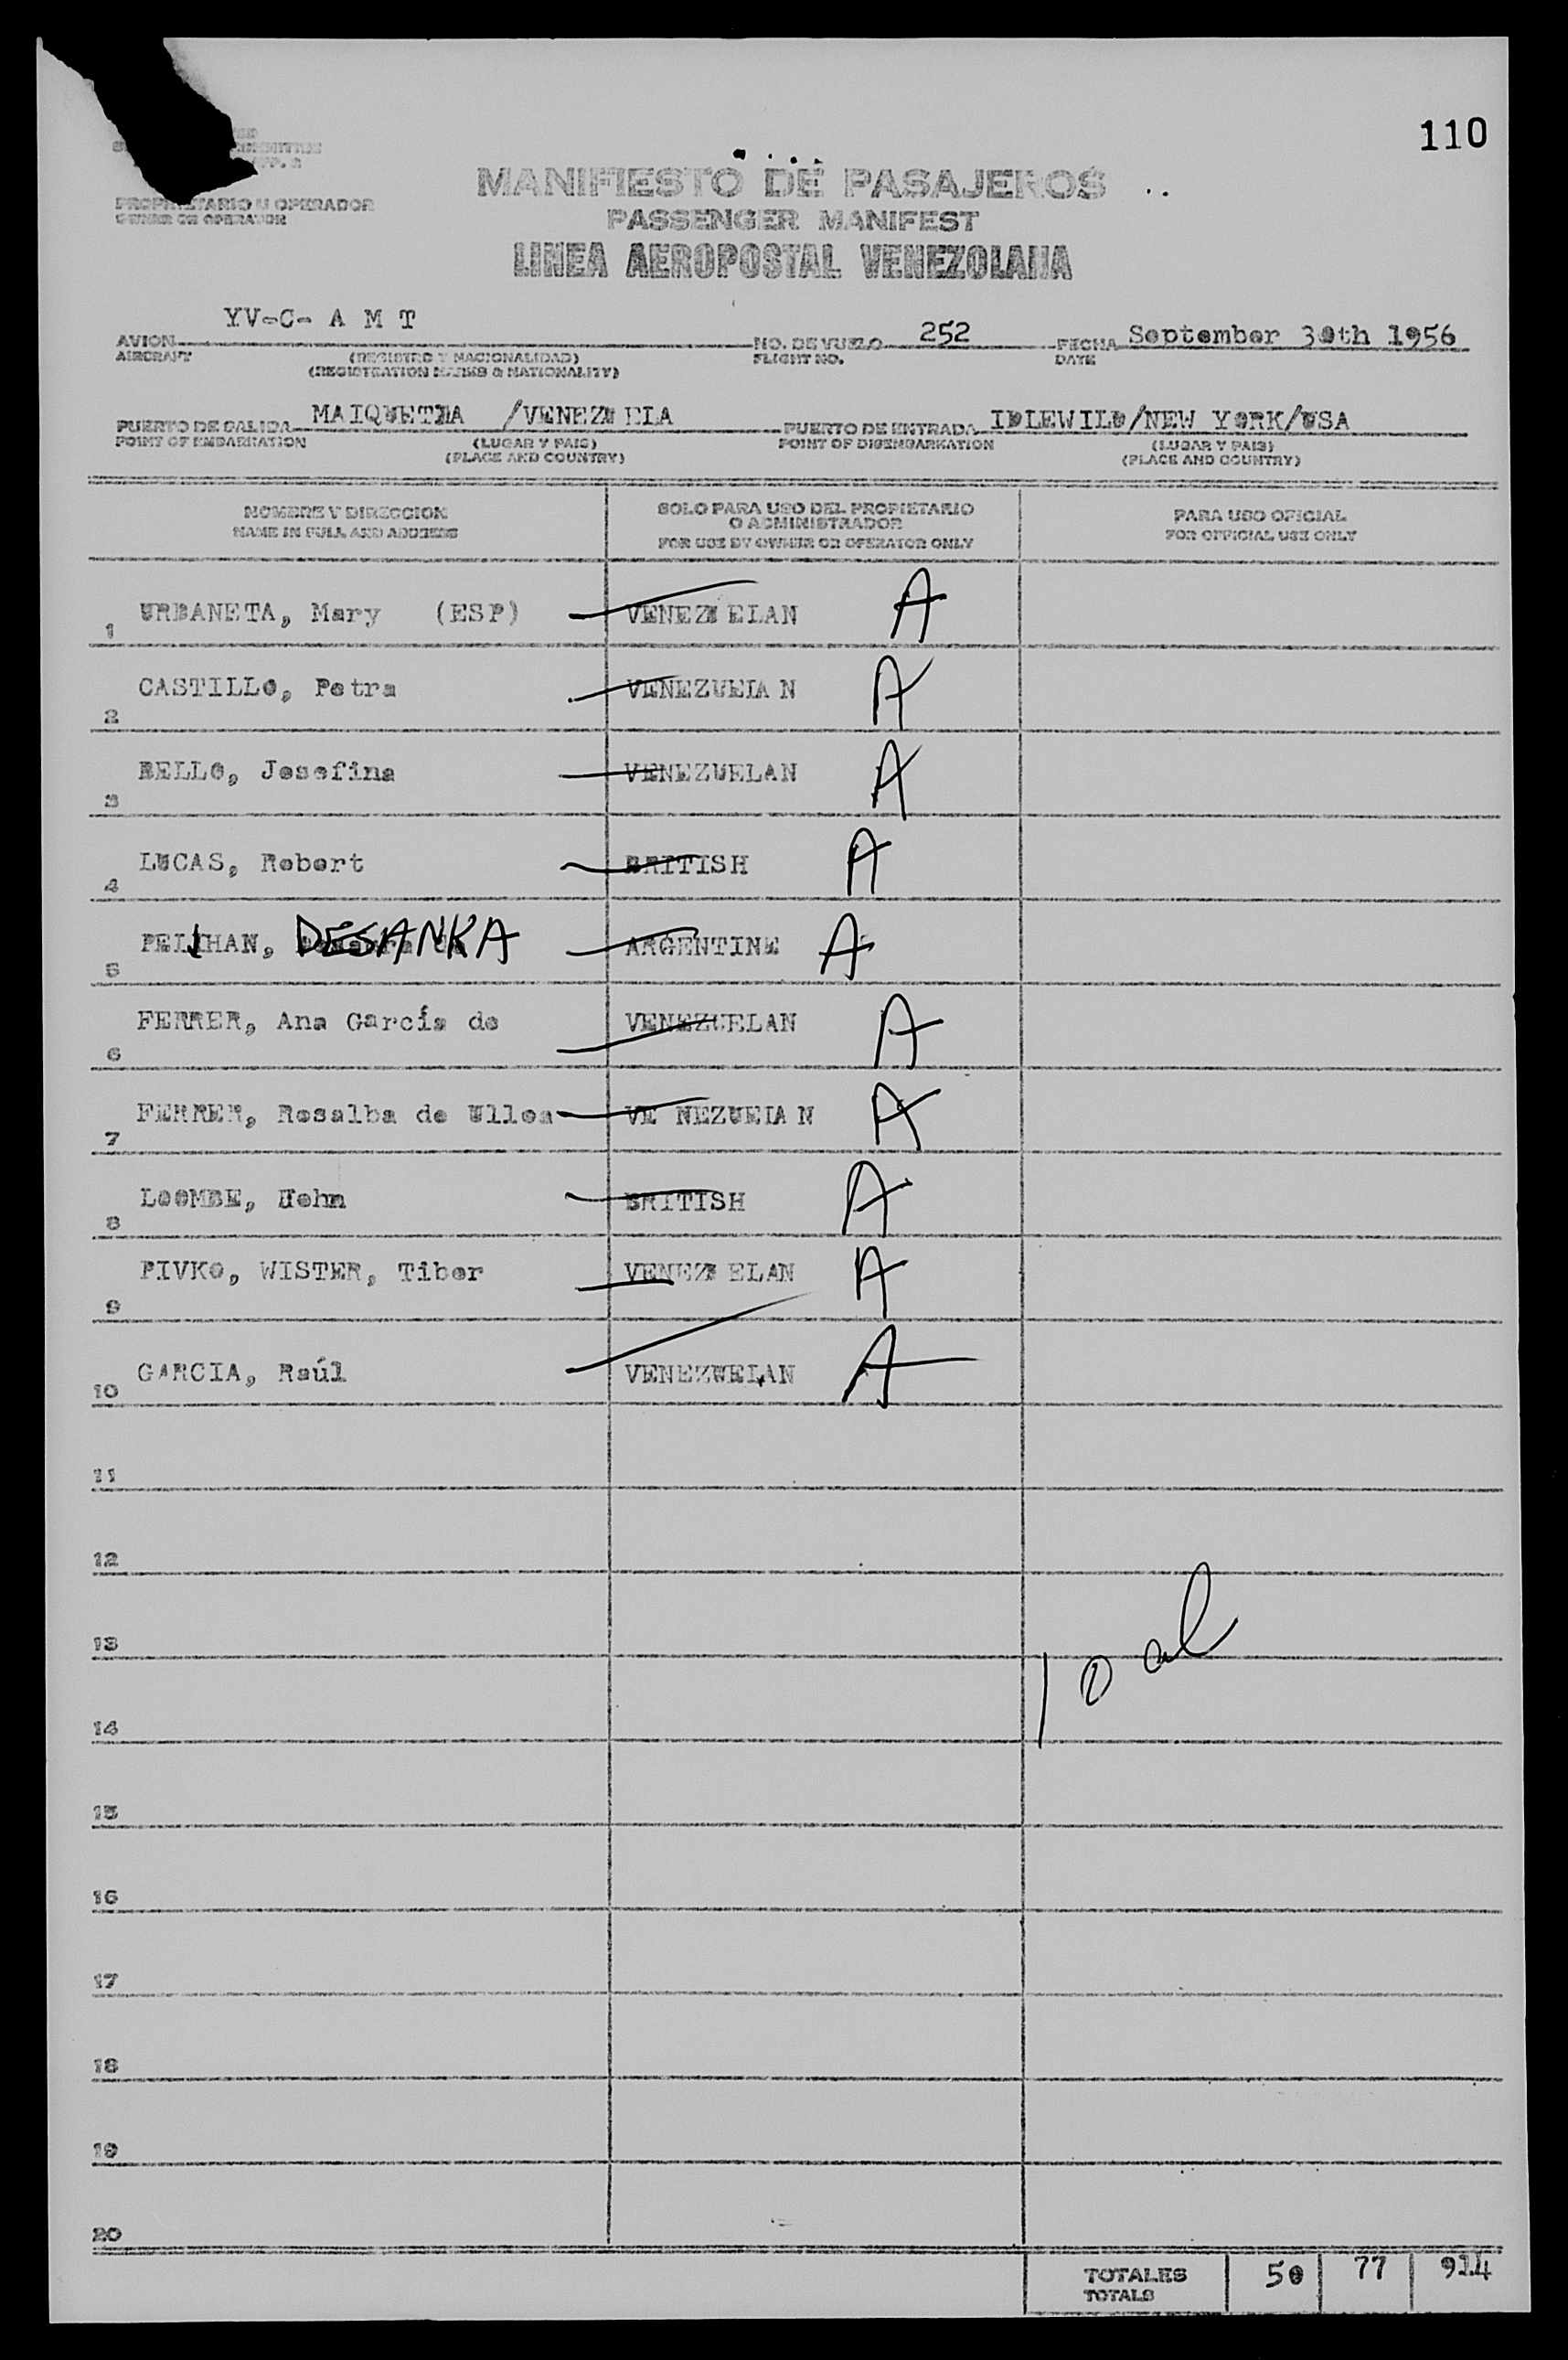 110
PROPIETARIO U OPERADOR
OWNER OR OPERATOR
MANIFIESTO DE PASAJEROS
PASSENGER MANIFEST
LINEA AEROPOSTAL VENEZOLANA
AVION YV-C- A M T NO. DE VUELO 252 FECHA September 30th 1956
AIRCRAFT (REGISTRO Y NACIONALIDAD) FLIGHT NO. DATE
(REGISTRATION MARKS & NATIONALITY)
PUERTO DE SALIDA MAIQUETIA /VENEZUELA PUERTO DE ENTRADA IDLEWILD/NEW YORK/USA
POINT OF EMBARKATION (LUGAR Y PAIS) POINT OF DISEMBARKATION (LUGAR Y PAIS)
(PLACE AND COUNTRY) (PLACE AND COUNTRY)
NOMBRE Y DIRECCION SOLO PARA USO DEL PROPIETARIO O ADMINISTRADOR PARA USO OFICIAL
NAME IN FULL AND ADDRESS FOR USE BY OWNER OR OPERATOR ONLY FOR OFFICIAL USE ONLY
1 URBANETA, Mary (ESP) VENEZUELAN A
2 CASTILLO, Petra VENEZUELAN A
3 BELLO, Josefina VENEZUELAN A
4 LUCAS, Robert BRITISH A
5 PEJHAN, DESANKA ARGENTINE A
6 FERRER, Ana García de VENEZUELAN A
7 FERRER, Rosalba de Ulloa VE NEZUELAN A
8 LOOMBE, John BRITISH A
9 PIVKO, WISTER, Tibor VENEZUELAN A
10 GARCIA, Raúl VENEZUELAN A
11
12
13
14
10 al
15
16
17
18
19
20
TOTALES 50 77 914
TOTALS